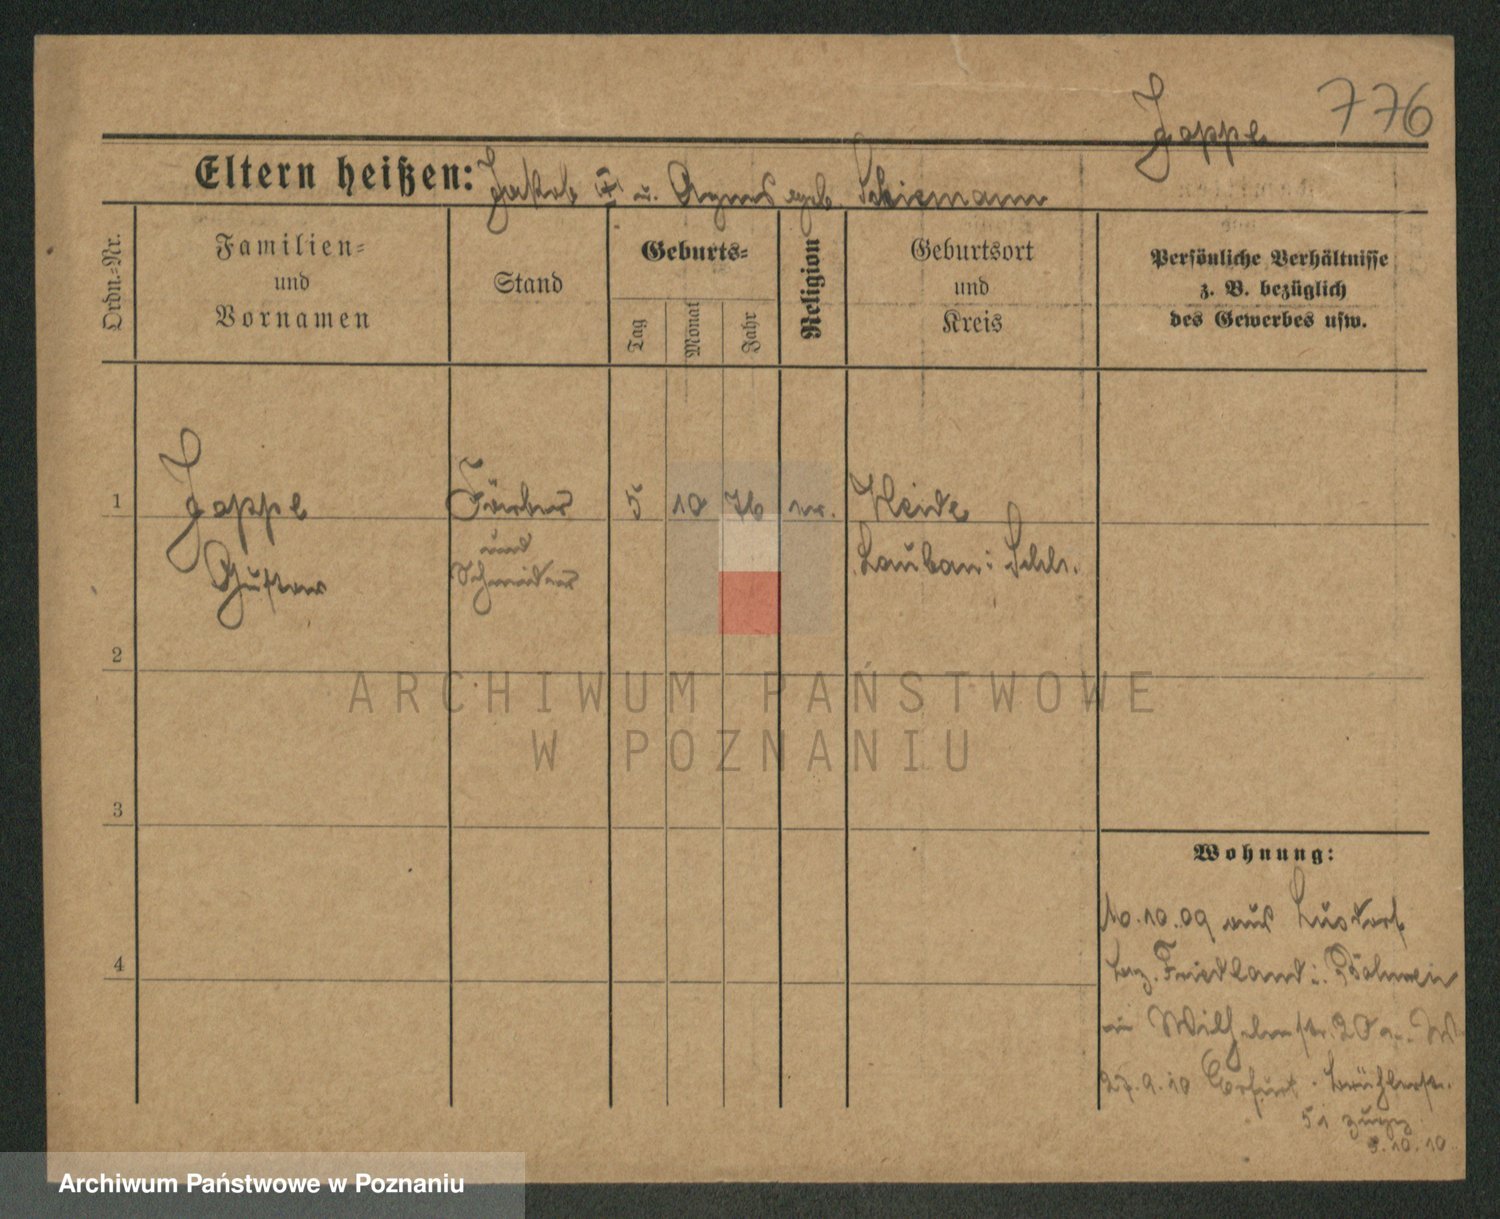 Joppe 776
Eltern heißen: Jakob u. Agnes geb. Schiemann
Ordn.-Nr.
Familien-
und
Vornamen
Stand
Geburts-
Tag
Monat
Jahr
Religion
Geburtsort
und
Kreis
Persönliche Verhältnisse
z. B. bezüglich
des Gewerbes usw.
1 Joppe Färber 5 10 76 Heide
Gustav und Lauban i Schl.
Schneider
2
3
4
Wohnung:
10.10.09 aus Lusdorf
Bez. Friedland i. Böhmen
in Wilhelmstr. 20
27.9.10 Erfurt
51
3.10.10
ARCHIWUM PAŃSTWOWE
W POZNANIU
Archiwum Państwowe w Poznaniu